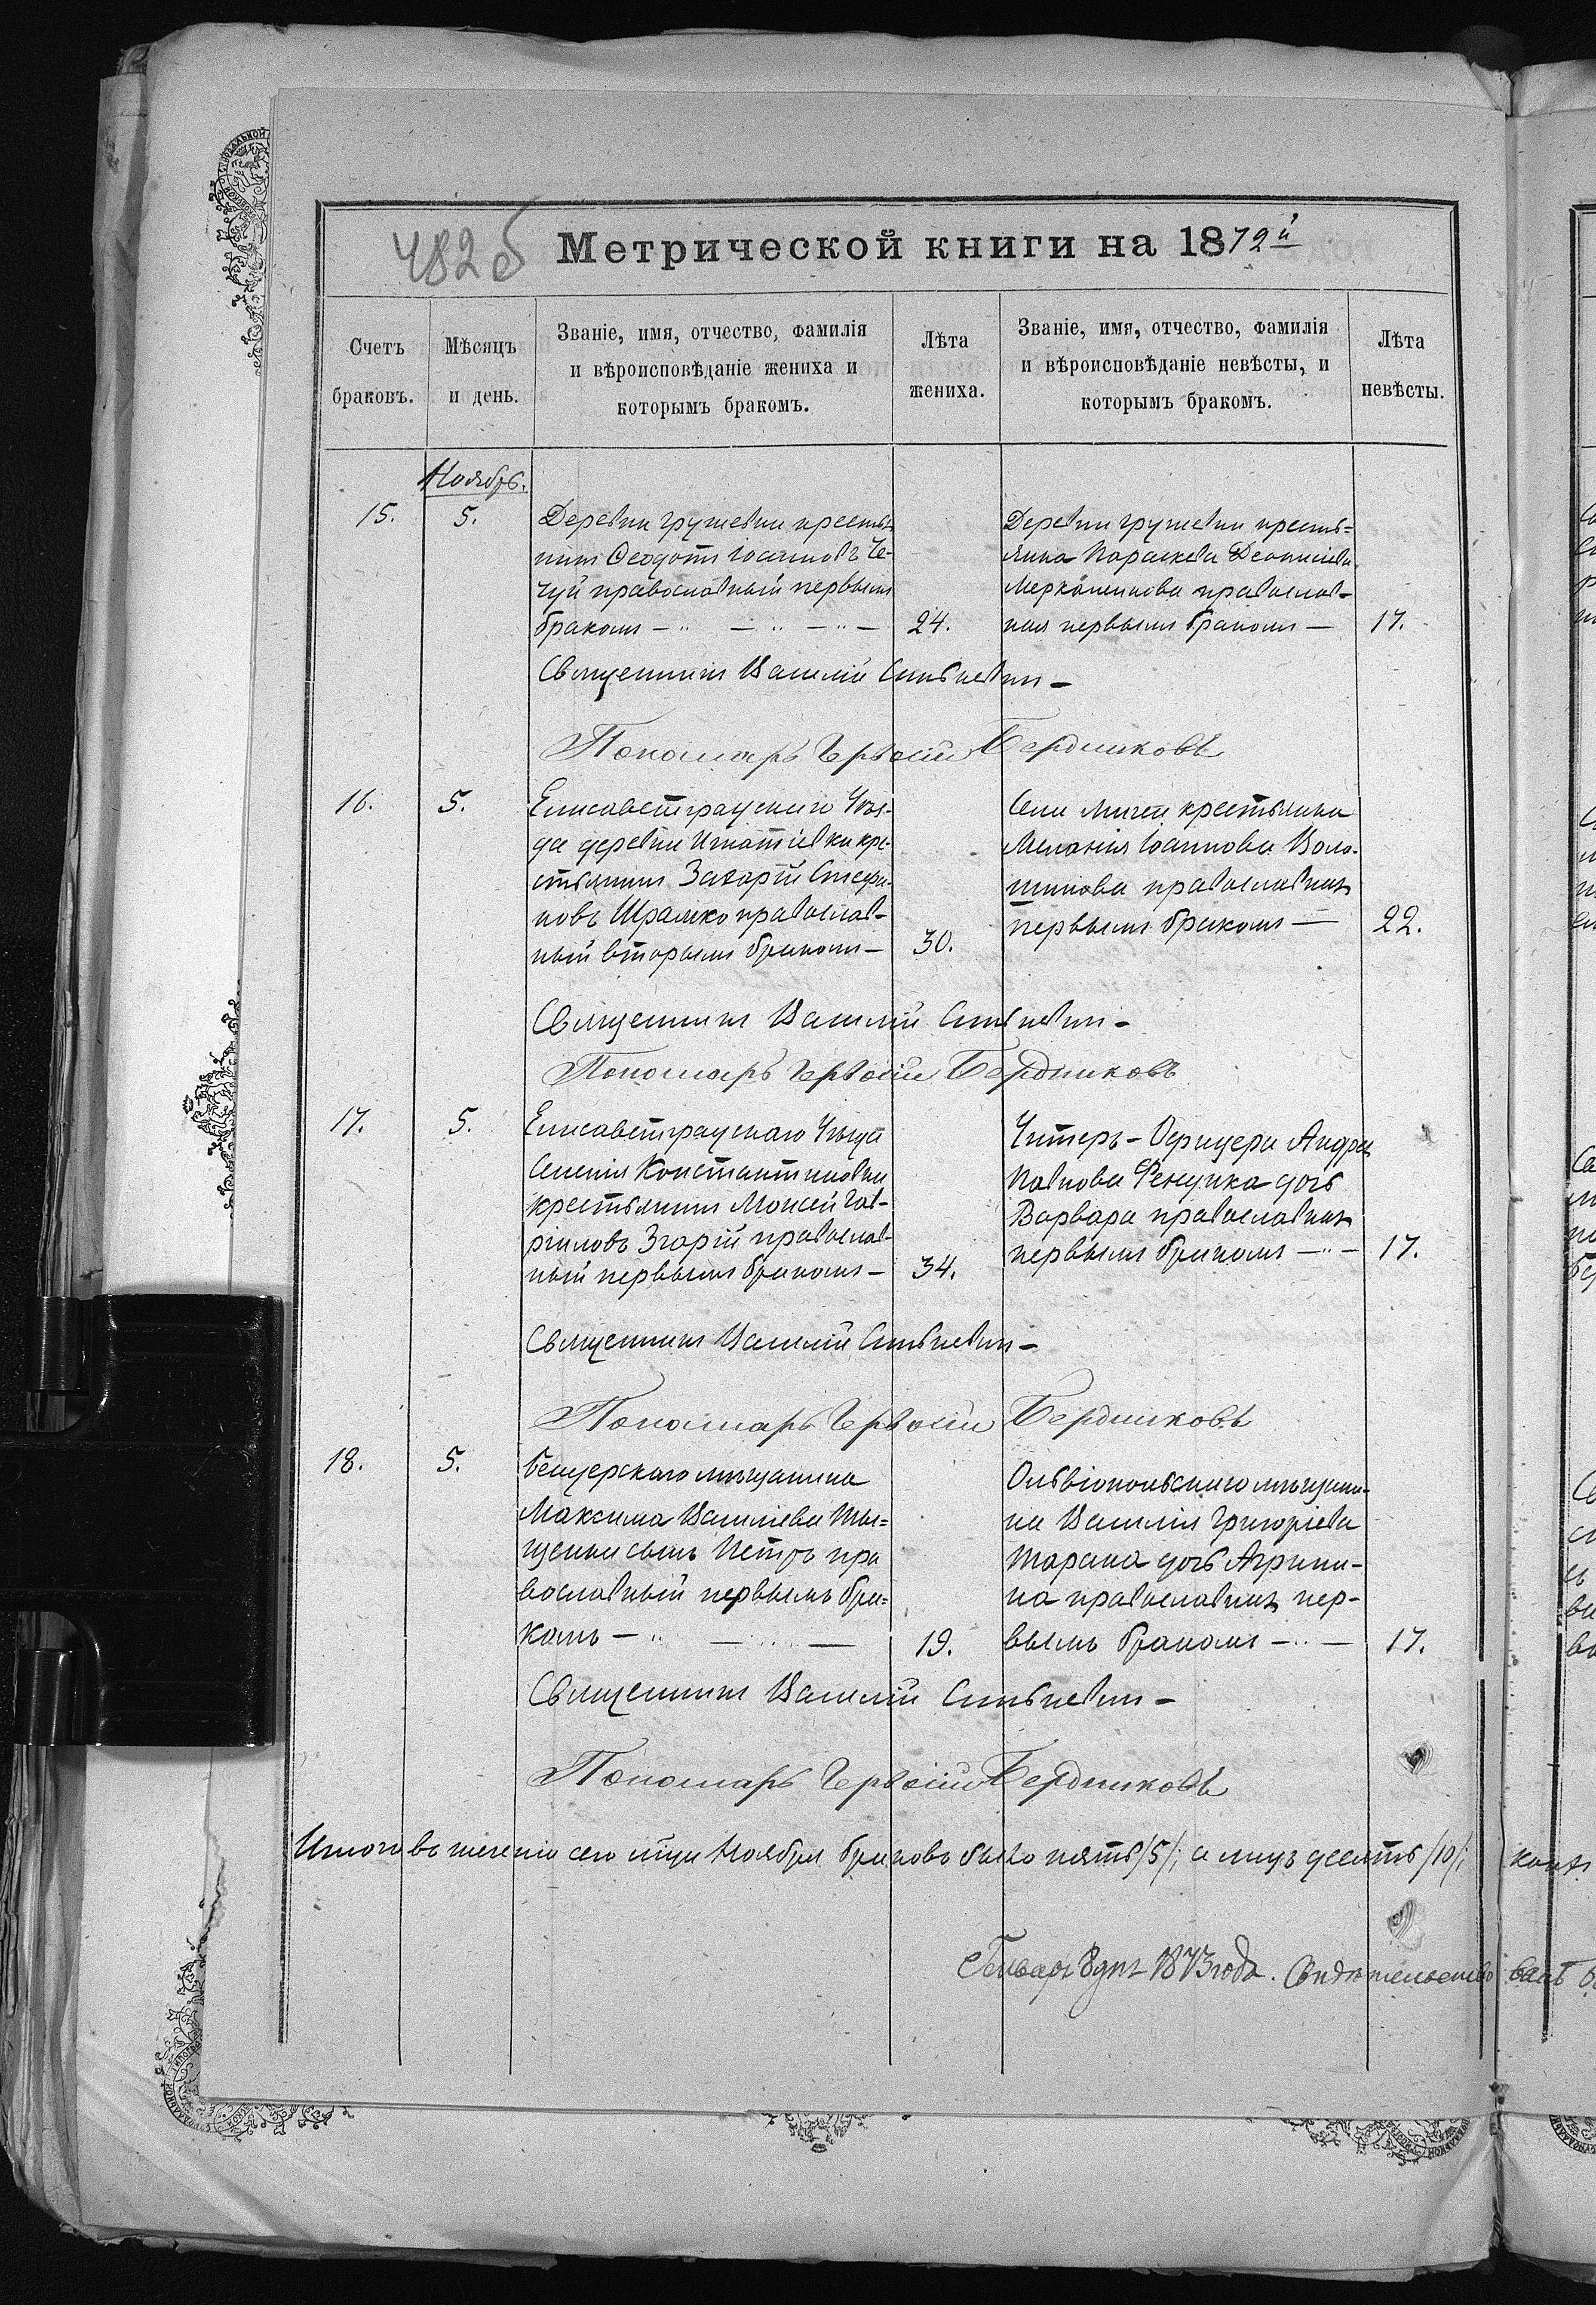 482об
Метрической книги на 1872й
Счетъ браковъ.
Мѣсяцъ и день.
Званіе, имя, отчество, фамилія и вѣроисповѣданіе жениха и которымъ бракомъ.
Лѣта жениха.
Званіе, имя, отчество, фамилія и вѣроисповѣданіе невѣсты, и которымъ бракомъ.
Лѣта невѣсты.
Ноябрь.
15.
5.
Деревни Грушевки крестья
нинъ Ѳеодотъ Іоанновъ Че-
чуй православный первымъ
бракомъ
24.
Деревни Грушевки кресть=
янка Параскева Деонисіева
православ-
ная первымъ бракомъ
17.
Священникъ Василій Синькевич
Пономарь Гервасій Бердниковъ
16.
5.
Елисаветградскаго Уѣз-
да деревни Игнатіевки кре-
стьянинъ Захарій Стефа-
новъ Шрамко православ-
ный вторымъ бракомъ
30.
Села Мигеи крестьянка
Меланія Іоаннова Воло-
шинова православная
первымъ бракомъ
22.
Священникъ Василій Синькевич
Пономарь Гервасій Бердниковъ
17.
5.
Елисаветградскаго Уѣзда
Селенія Константиновки
крестьянинъ Моисей Гав-
рiиловъ Згарій православ-
ный первымъ бракомъ
34.
Унтеръ-Офицера Андрея
Павлова дочь
Варвара православная
первымъ бракомъ
17.
Священникъ Василій Синькевич
Пономарь Гервасій Бердниковъ
18.
5.
Бендерскаго мѣщанина
Максима Василіева Ты=
щенка сынъ Петръ пра
вославный первымъ бра=
комъ
19.
Ольвіопольскаго мѣщани-
на Василія Григоріева
Тарана дочь Агрипи-
на православная пер-
вымъ бракомъ
17.
Священникъ Василій Синькевич
Пономарь Гервасій Бердниковъ
Итого въ теченіи сего м̃ца Ноября браковъ было пять /5/; а лицъ десять /10/;
Генваря 8 дня 1873 года. Свидѣтельство
валъ